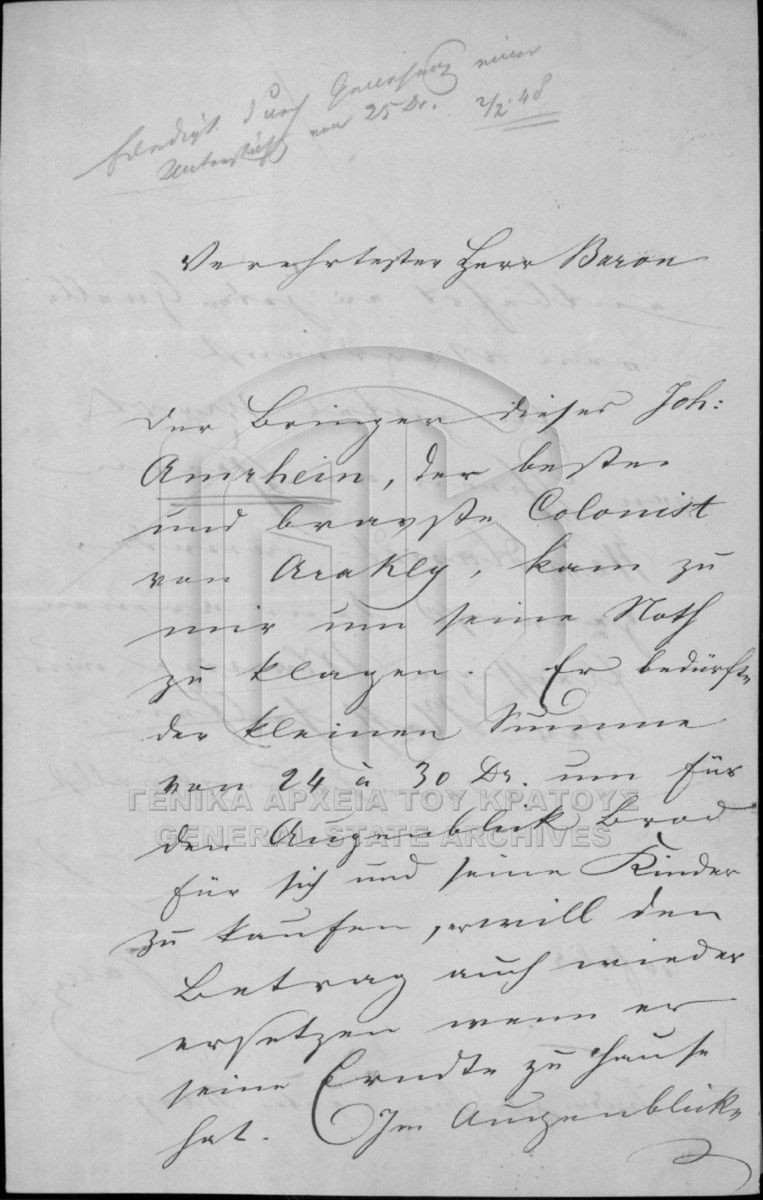 Erledigt durch Anweisung einer
Unterstützg von 25 Dr. 2/2.48
Verehrtester Herr Baron
Der Bringer dieses Joh:
Amrhein, der beste
und bravste Colonist
von Arakly, kam zu
mir um seine Noth
zu klagen. Er bedürfte
der kleinen Summe
von 24 à 30 Dr. um für
den Augenblick Brod
für sich und seine Kinder
zu kaufen, er will den
Betrag auch wieder
ersetzen wenn er
seine Erndte zu Hause
hat. Im Augenblick
ΓΕΝΙΚΑ ΑΡΧΕΙΑ ΤΟΥ ΚΡΑΤΟΥΣ
GENERAL STATE ARCHIVES